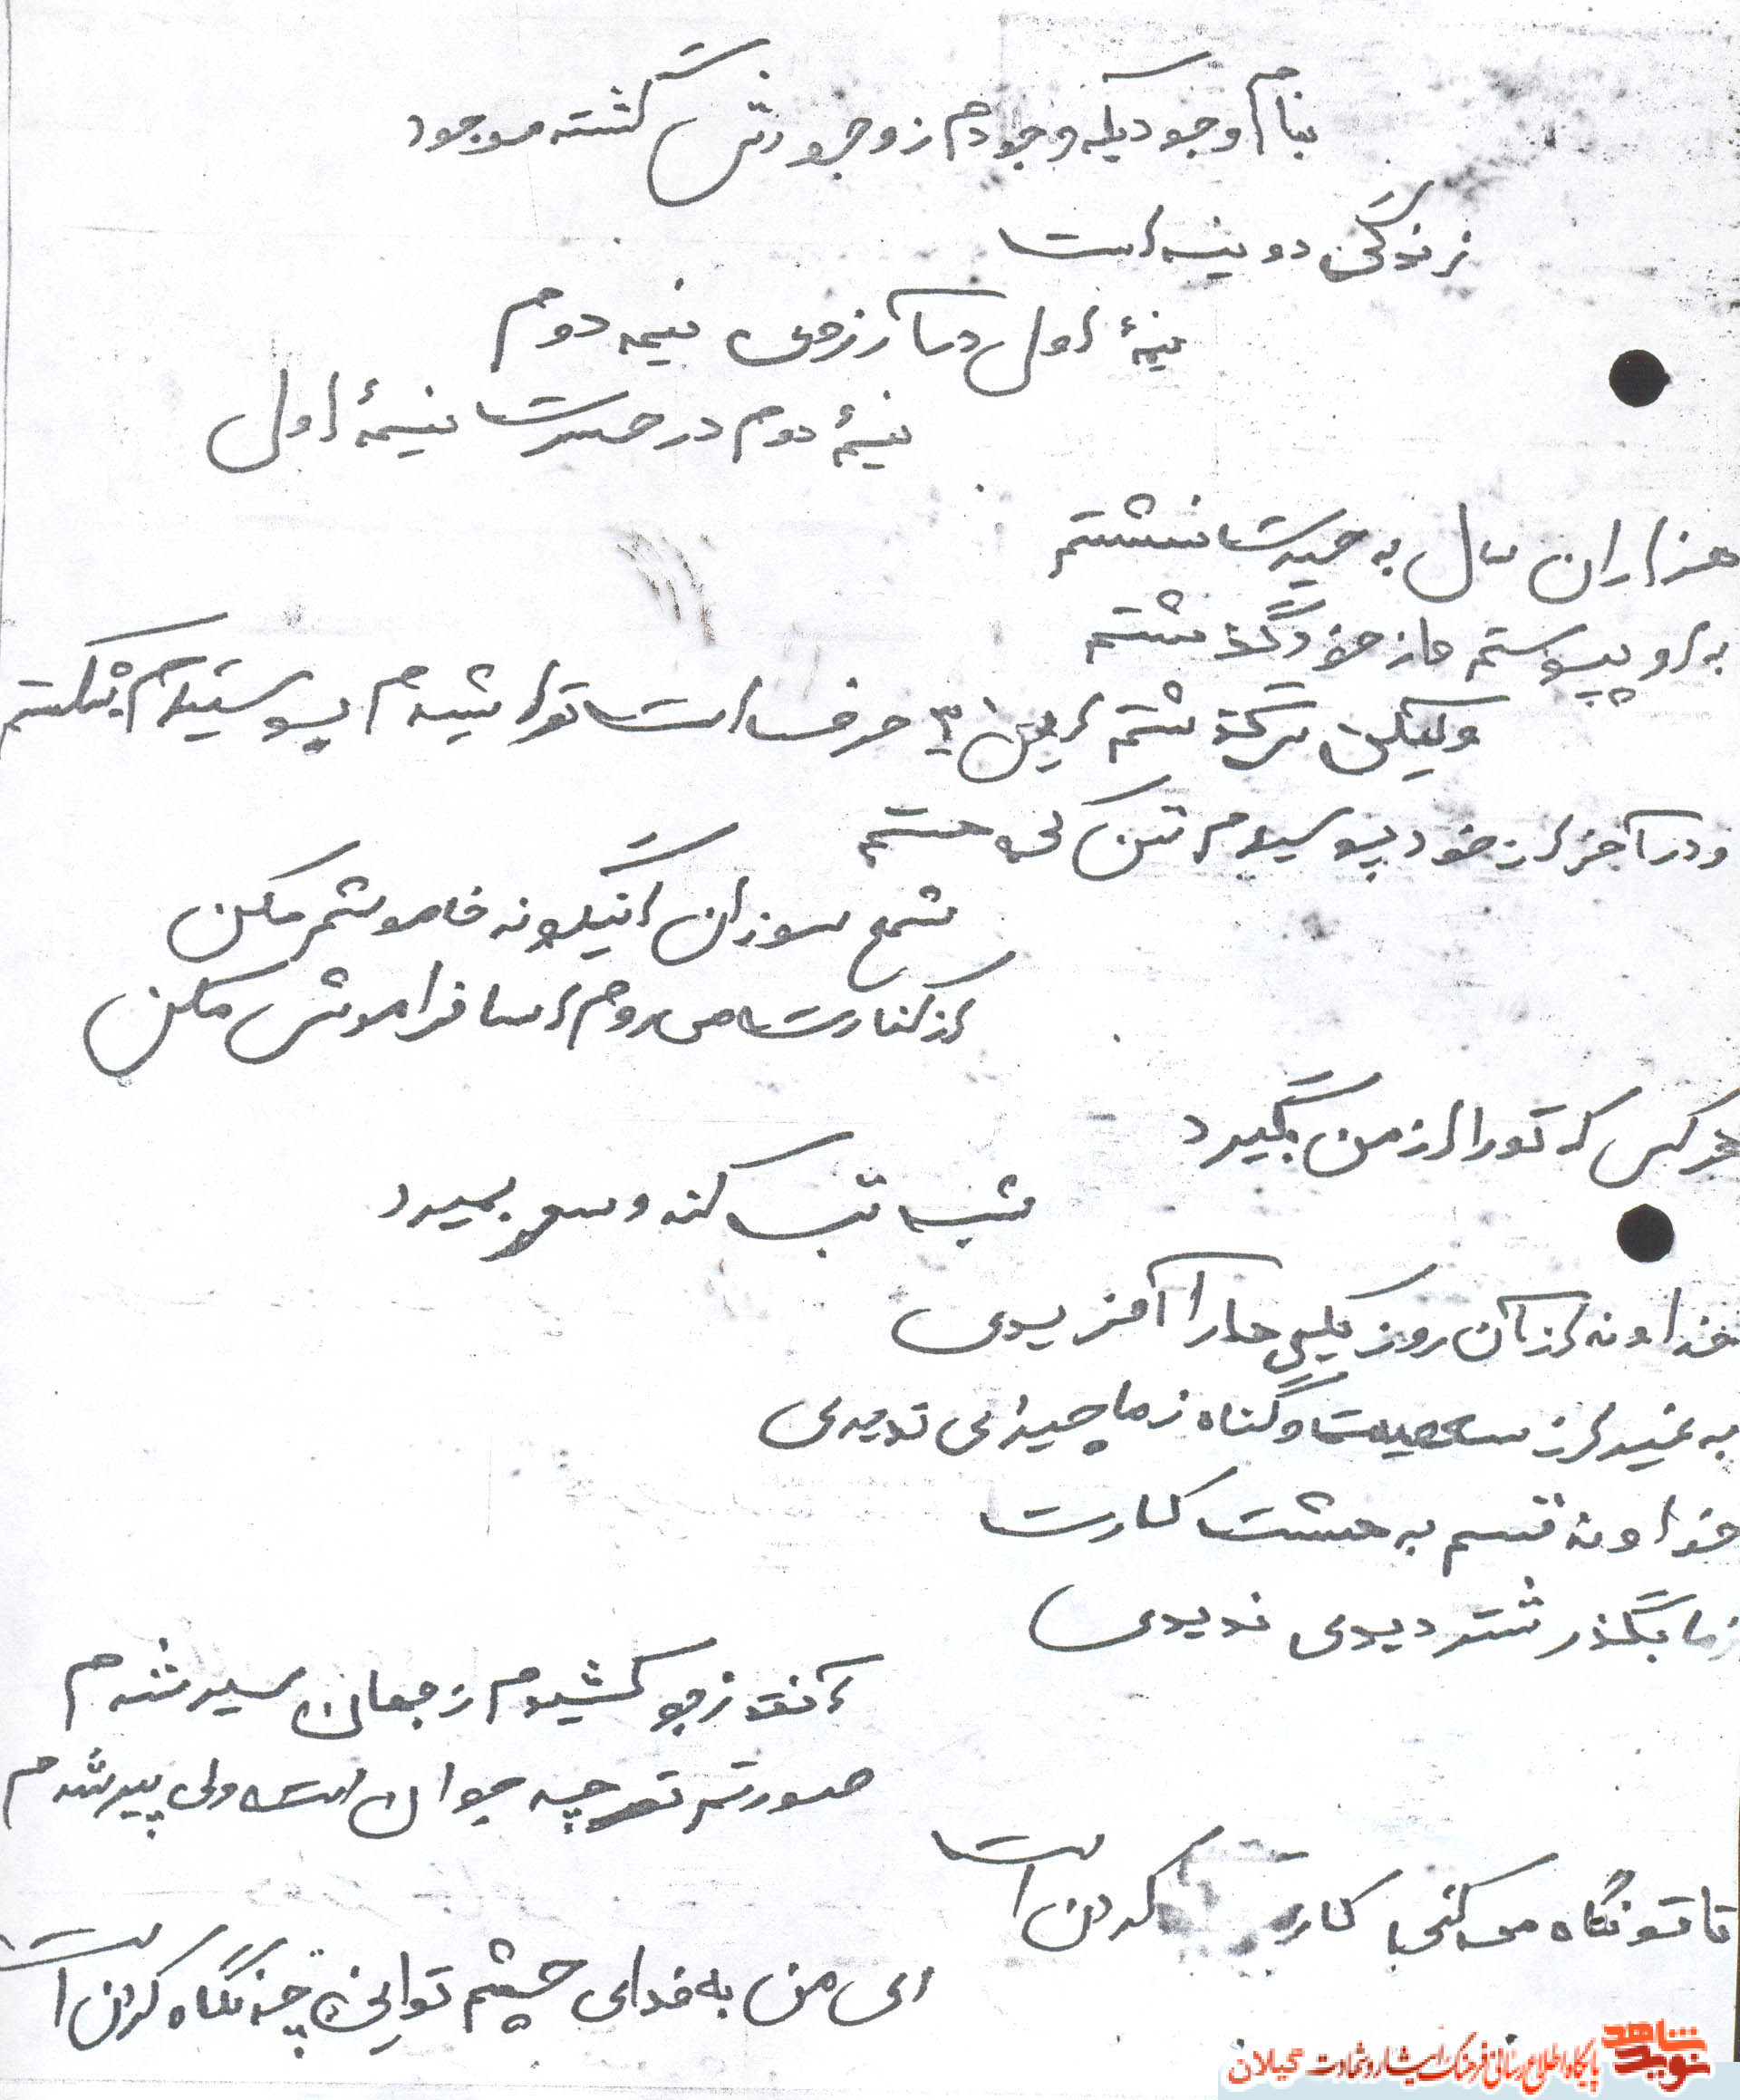 بنام وجودیکه وجودم ز وجودش گشته موجود
زندگی دو نیمه است
نیمهٔ اول در آرزوی نیمه دوم
نیمهٔ دوم در حسرت نیمهٔ اول
هزاران سال به حیرت نشستم
به او پیوستم و از خود گذشتم
ولیکن سرگذشتم این ۳ حرف است تراشیدم پرستیدم شکستم
و در آخر از خود پرسیدم من کی هستم
شمع سوزان اینگونه خاموشم مکن
از کنارت می روم اما فراموش مکن
هر کس که تو را از من بگیرد
شب تب کند و سحر بمیرد
خداوند از آن روزیکه ما را آفریدی
به غیر از معصیت و گناه ز ما چیزی ندیدی
خداوند قسم به هشت و کارت
ز ما بگذر شتر دیدی ندیدی
آنقدر زجر کشیدم ز جهان سیر شدم
صورتم گرچه جوان است ولی پیر شدم
تا تو نگاه می کنی کار کردن است
ای من به فدای چشم تو این چه نگاه کردن است
نوید شاهد
پایگاه اطلاع رسانی فرهنگ ایثار و شهادت گیلان